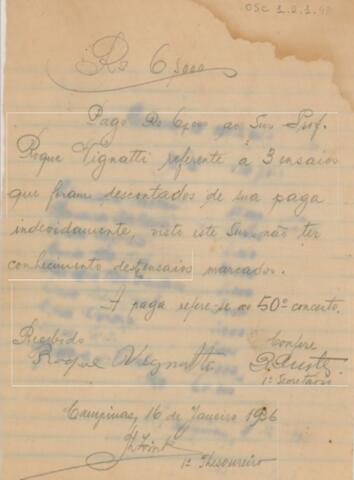 OSC 1.2.1.
Rs 6$000
Pago Rs 6$000 ao Snr. Prof.
Roque Vignatti referente á 3 ensaios
que foram descontados de sua paga
indevidamente, visto este Snr. não ter
conhecimento dest ensaios marcados.
A paga refere-se ao 50º concerto.
Recebido
Confere
Roque Vignatti
1º Secretario
Campinas, 16 de Janeiro 1936
1º Thesoureiro